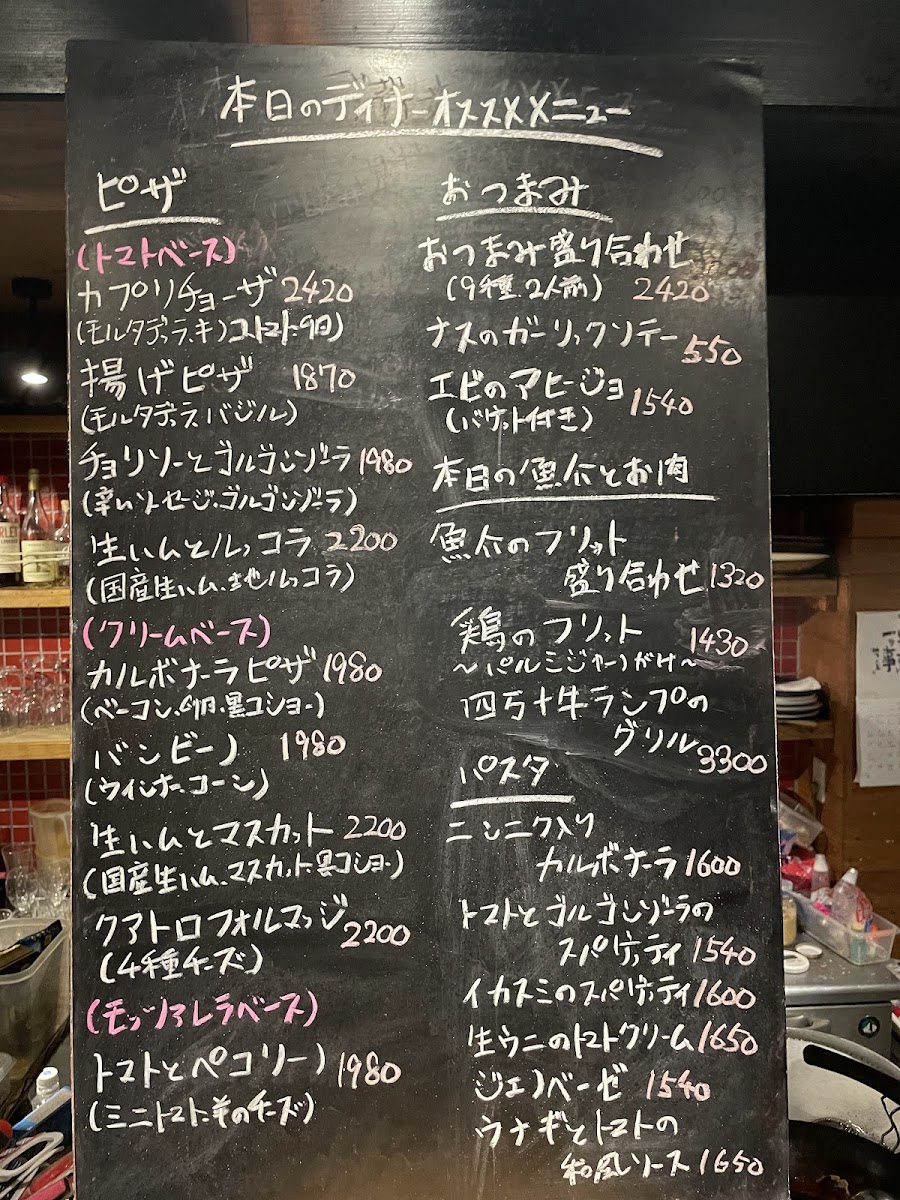 本日のディナーオススメメニュー
ピザ
(トマトベース)
カプリチョーザ 2420
(モルタデッラ、キノコ、トマト、卵)
揚げピザ 1870
(モルタデッラ、バジル)
チョリソーとゴルゴンゾーラ 1980
(辛いソーセージ、ゴルゴンゾーラ)
生ハムとルッコラ 2200
(国産生ハム、生地ルッコラ)
(クリームベース)
カルボナーラピザ 1980
(ベーコン、卵、黒コショー)
バンビーノ 1980
(ウインナー、コーン)
生ハムとマスカット 2200
(国産生ハム、マスカット、黒コショー)
クアトロフォルマッジ 2200
(4種チーズ)
(モッツァレラベース)
トマトとペコリーノ 1980
(ミニトマト、羊のチーズ)
おつまみ
おつまみ盛り合わせ
(9種、2人前) 2420
ナスのガーリックソテー 550
エビのアヒージョ 1540
(バケット付き)
本日の魚介とお肉
魚介のフリット
盛り合わせ 1320
鶏のフリット 1430
〜パルミジャーノがけ〜
四万十牛ランプの
グリル 3300
パスタ
ニンニク入り
カルボナーラ 1600
トマトとゴルゴンゾーラの
スパゲッティ 1540
イカスミのスパゲッティ 1600
生ウニのトマトクリーム 1650
ジェノベーゼ 1540
ウナギとトマトの
和風ソース 1650